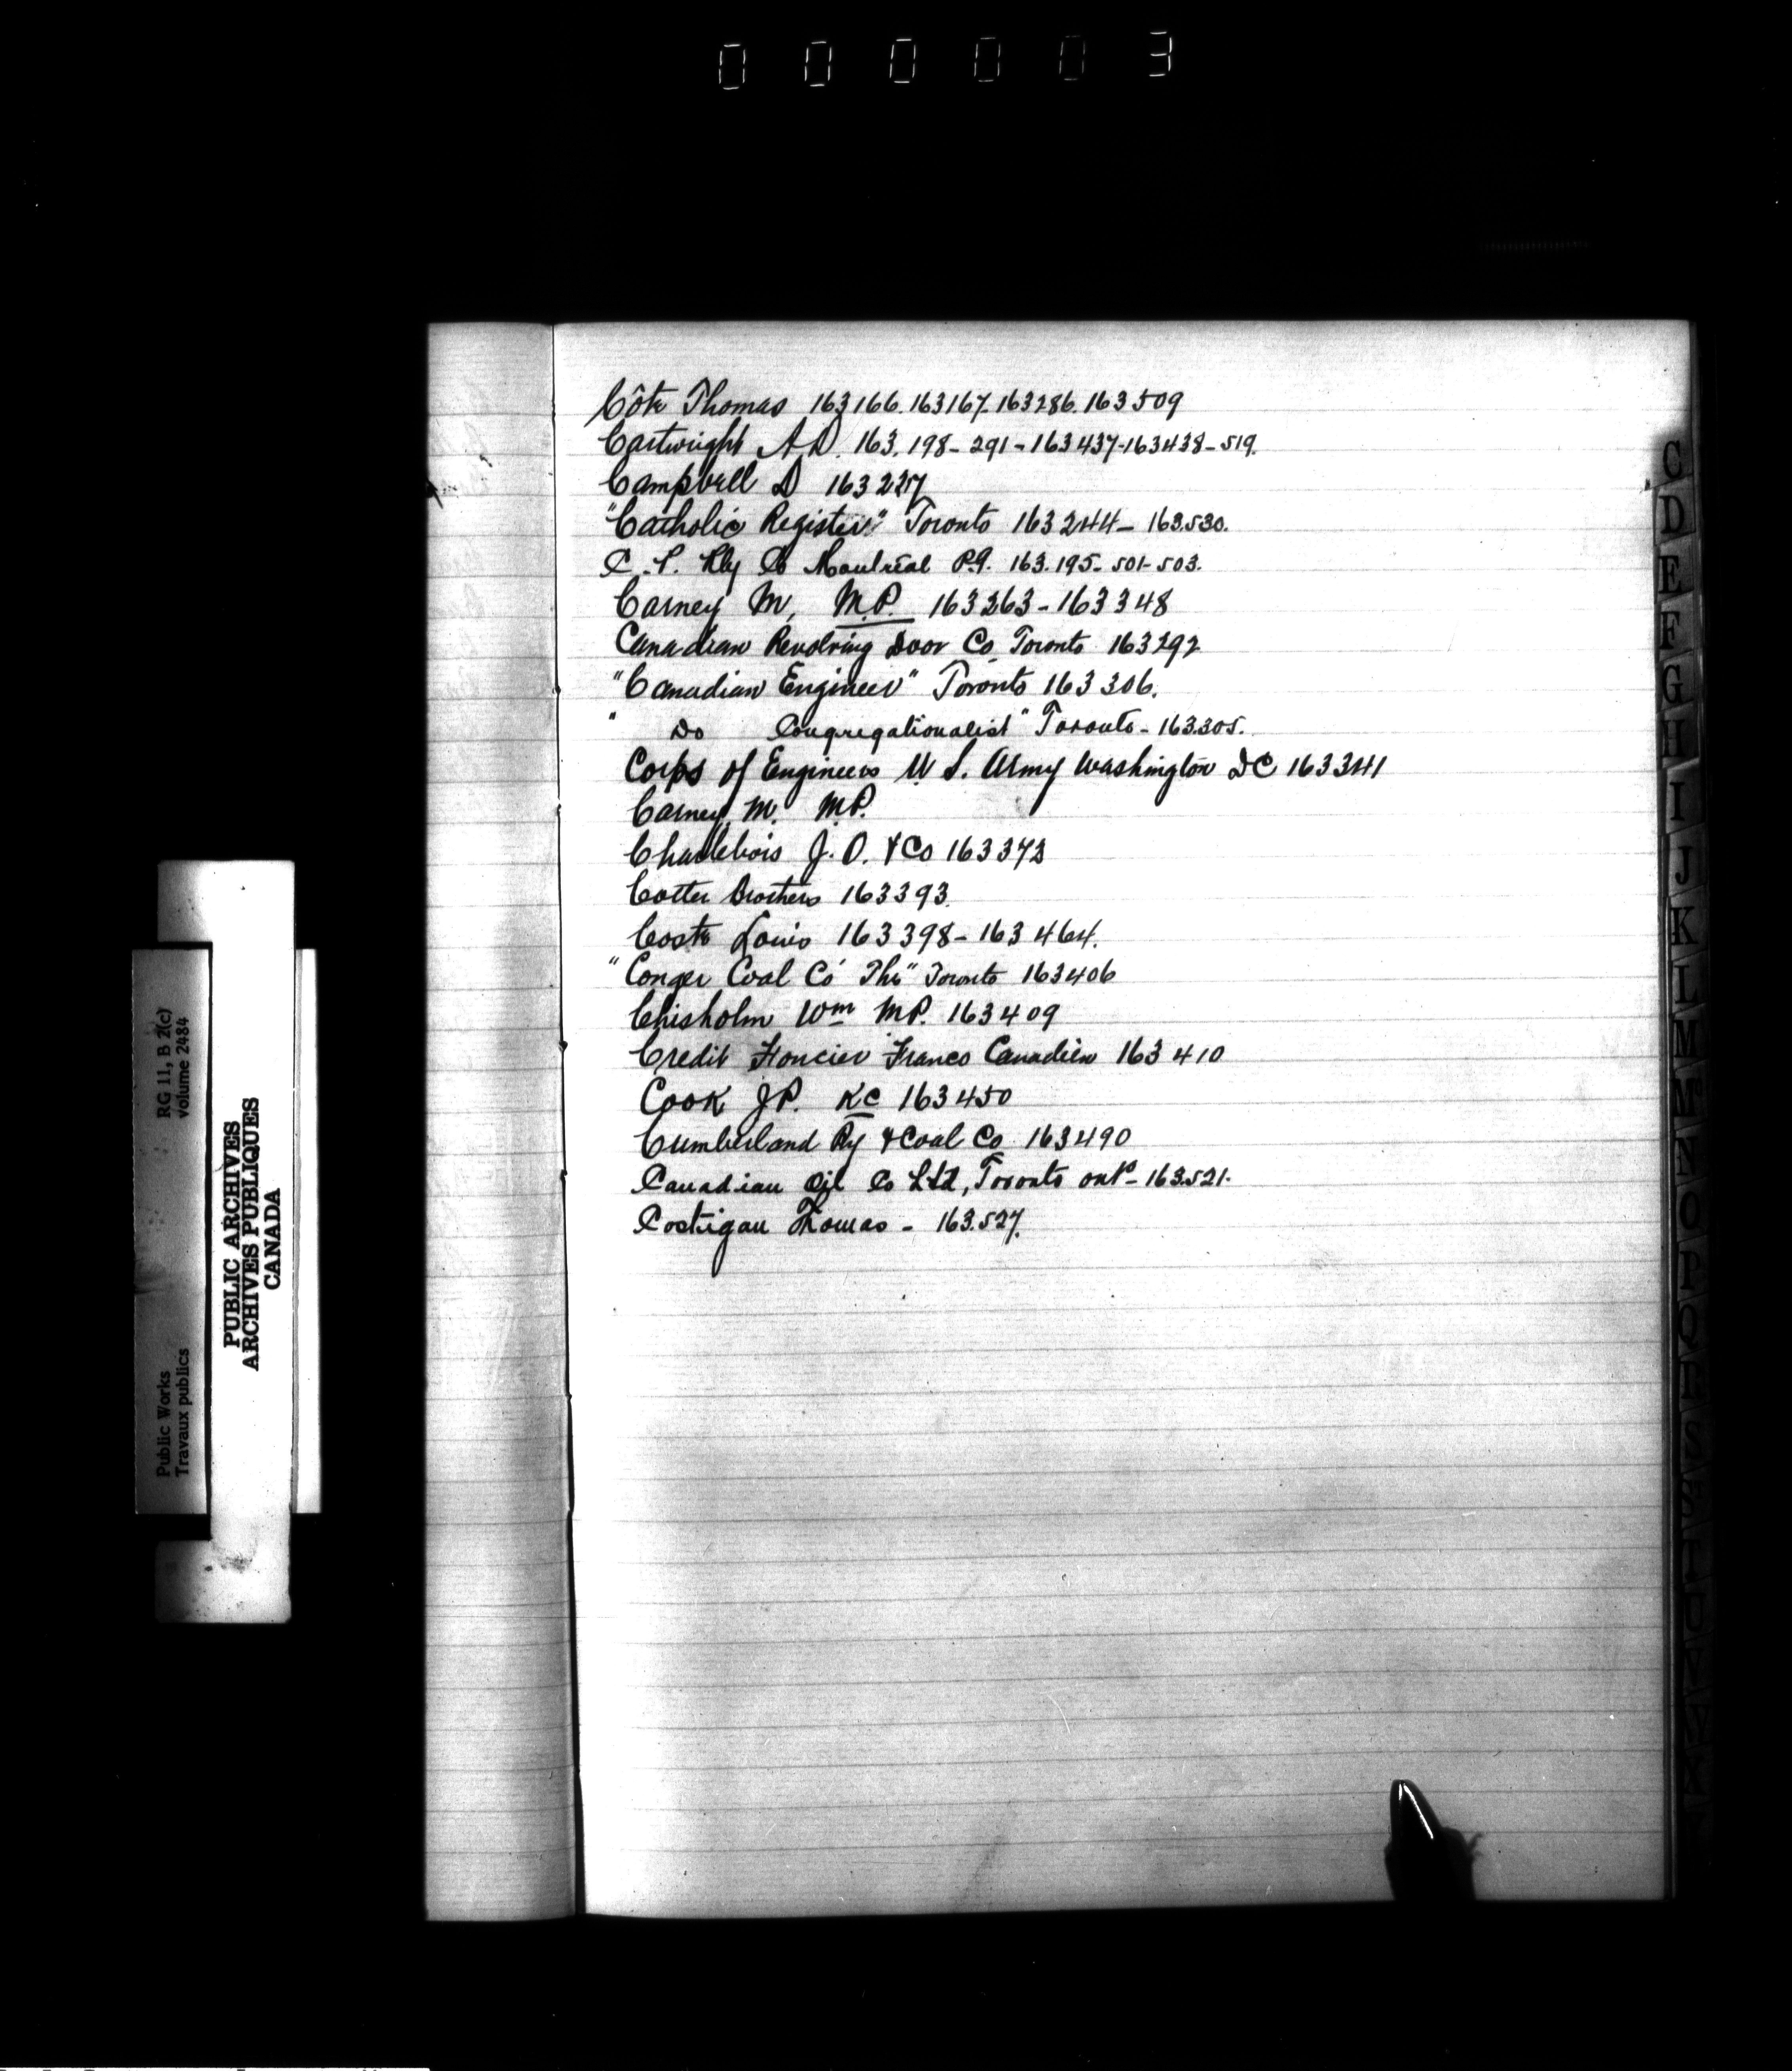 000003
Côte Thomas 163166. 163167. 163286. 163509
Cartwright A D. 163. 198- 291- 163437-163438-519.
Campbell D 163227
"Catholic Register" Toronto 163244- 163.530.
C. P. Rly Co Montreal P.Q. 163.195- 501-503.
Carney M, M.P. 163263-163348
Canadian Revolving Door Co Toronto 163292
"Canadian Engineer" Toronto 163306.
" Do Congregationalist" Toronto- 163.305.
Corps of Engineers U S. Army Washington DC 163341
Carney, M. M.P.
Charlebois J. O. & Co 163373
Cotter Brothers 163393.
Coste Louis 163398- 163464.
"Conger Coal Co The" Toronto 163406
Chisholm Wm MP. 163409
Credit Foncier Franco Canadien 163410
Cook JP. KC 163450
Cumberland Ry & Coal Co 163490
Canadian Oil Co Ltd, Toronto ont- 163.521.
Costigan Thomas - 163.527.
C
D
E
F
G
H
I
J
K
L
M
Mc
N
O
P
Q
R
S
T
U
V
W
X
Public Works
Travaux publics
RG 11, B 2(c)
volume 2484
PUBLIC ARCHIVES
ARCHIVES PUBLIQUES
CANADA